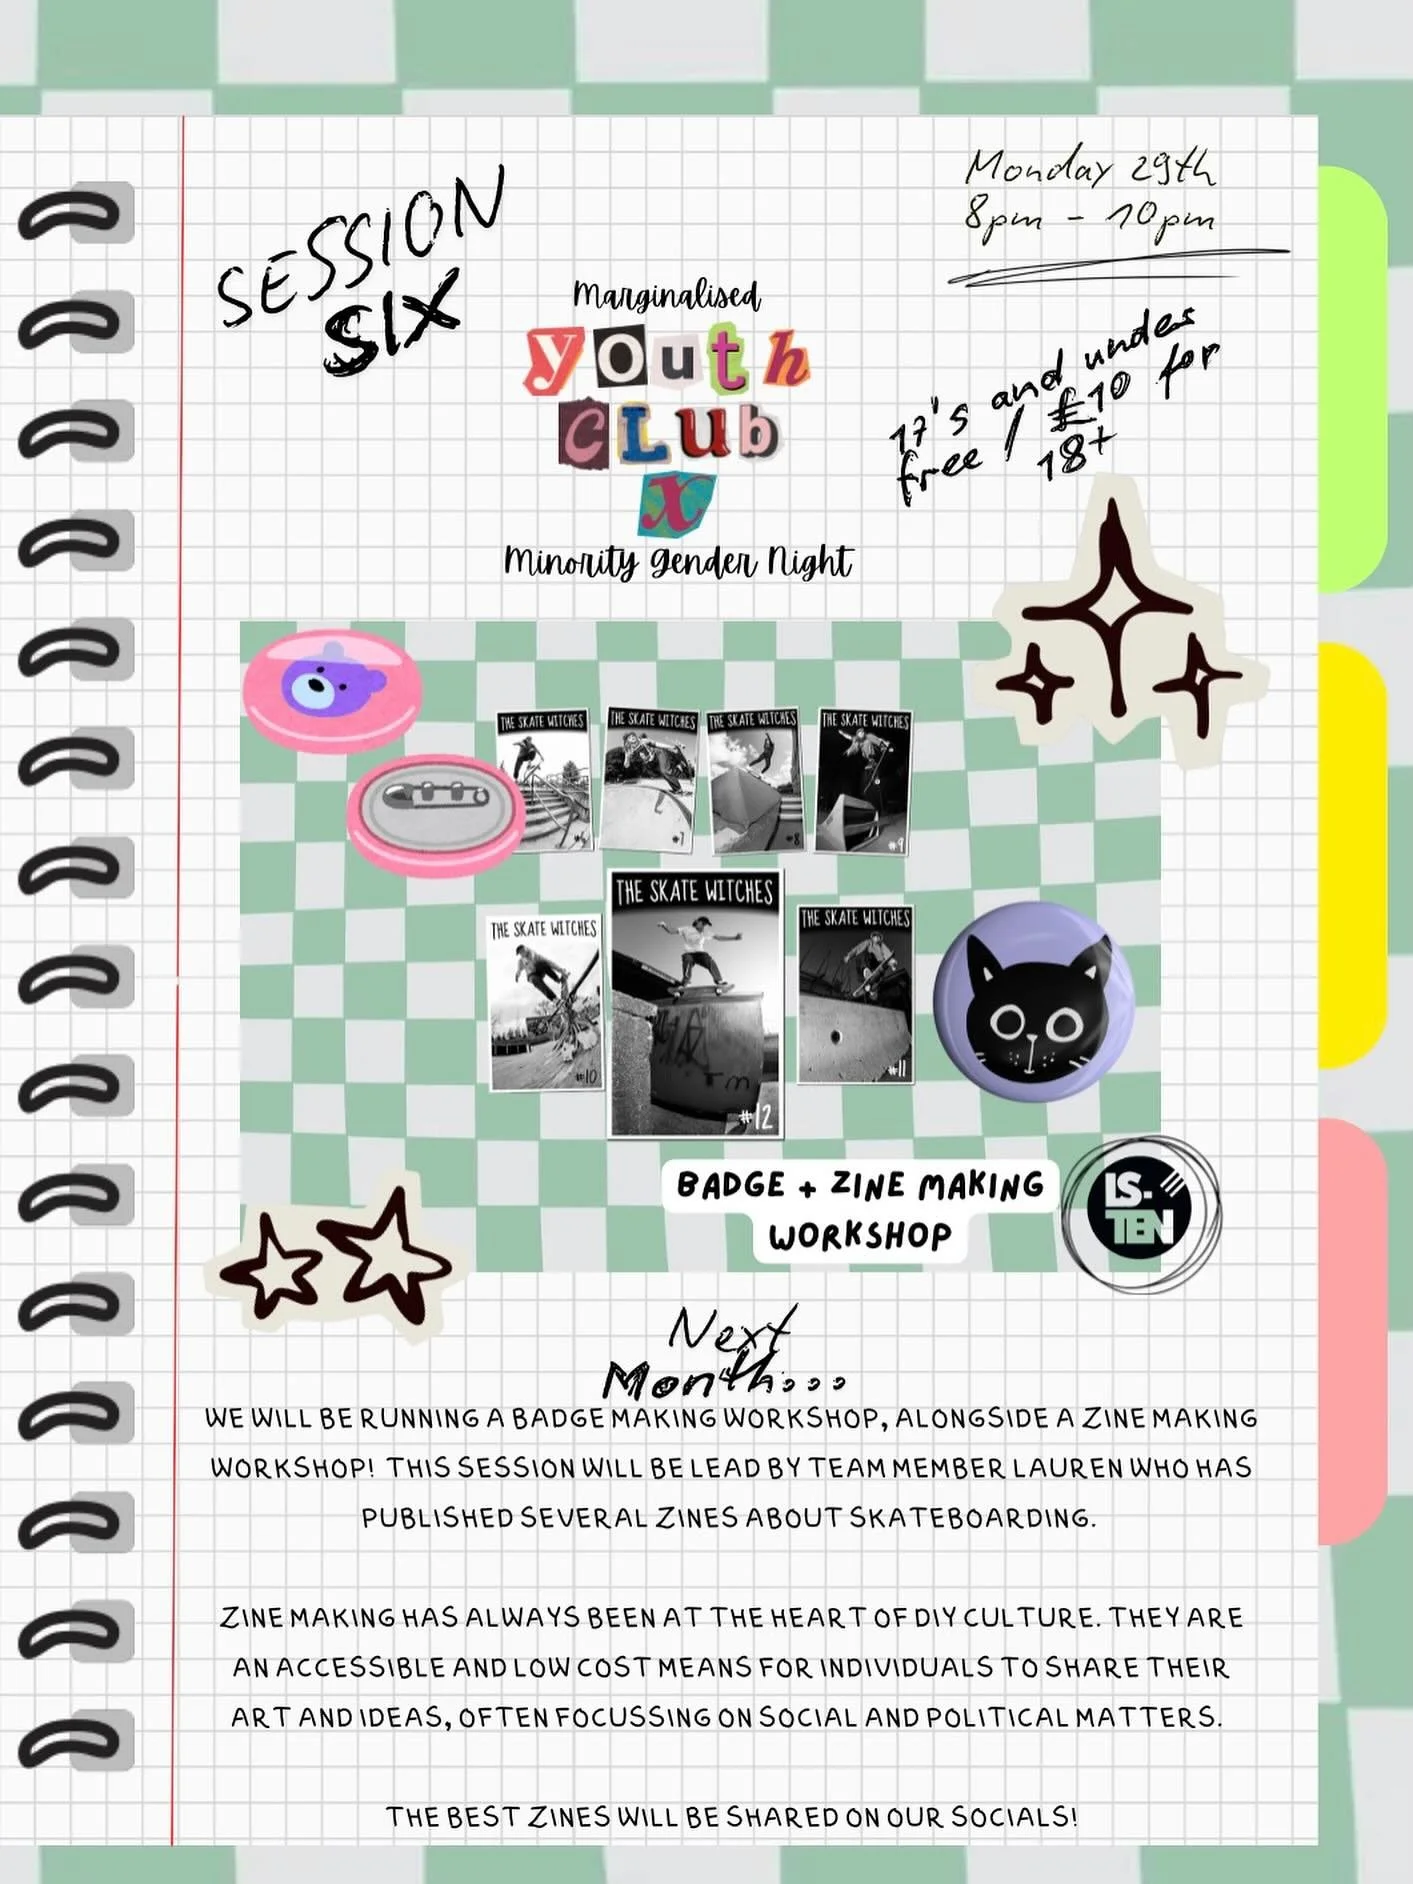 SESSION
SIX
Monday 29th
8pm - 10pm
17's and under
free / £10 for
18+
Marginalised
youth
CLub
x
Minority Gender Night
THE SKATE WITCHES
THE SKATE WITCHES
#7
THE SKATE WITCHES
#8
THE SKATE WITCHES
#9
THE SKATE WITCHES
#10
THE SKATE WITCHES
#12
THE SKATE WITCHES
#11
BADGE + ZINE MAKING
WORKSHOP
IS.
TEN
Next
Month...
WE WILL BE RUNNING A BADGE MAKING WORKSHOP, ALONGSIDE A ZINE MAKING
WORKSHOP! THIS SESSION WILL BE LEAD BY TEAM MEMBER LAUREN WHO HAS
PUBLISHED SEVERAL ZINES ABOUT SKATEBOARDING.
ZINE MAKING HAS ALWAYS BEEN AT THE HEART OF DIY CULTURE. THEY ARE
AN ACCESSIBLE AND LOW COST MEANS FOR INDIVIDUALS TO SHARE THEIR
ART AND IDEAS, OFTEN FOCUSSING ON SOCIAL AND POLITICAL MATTERS.
THE BEST ZINES WILL BE SHARED ON OUR SOCIALS!